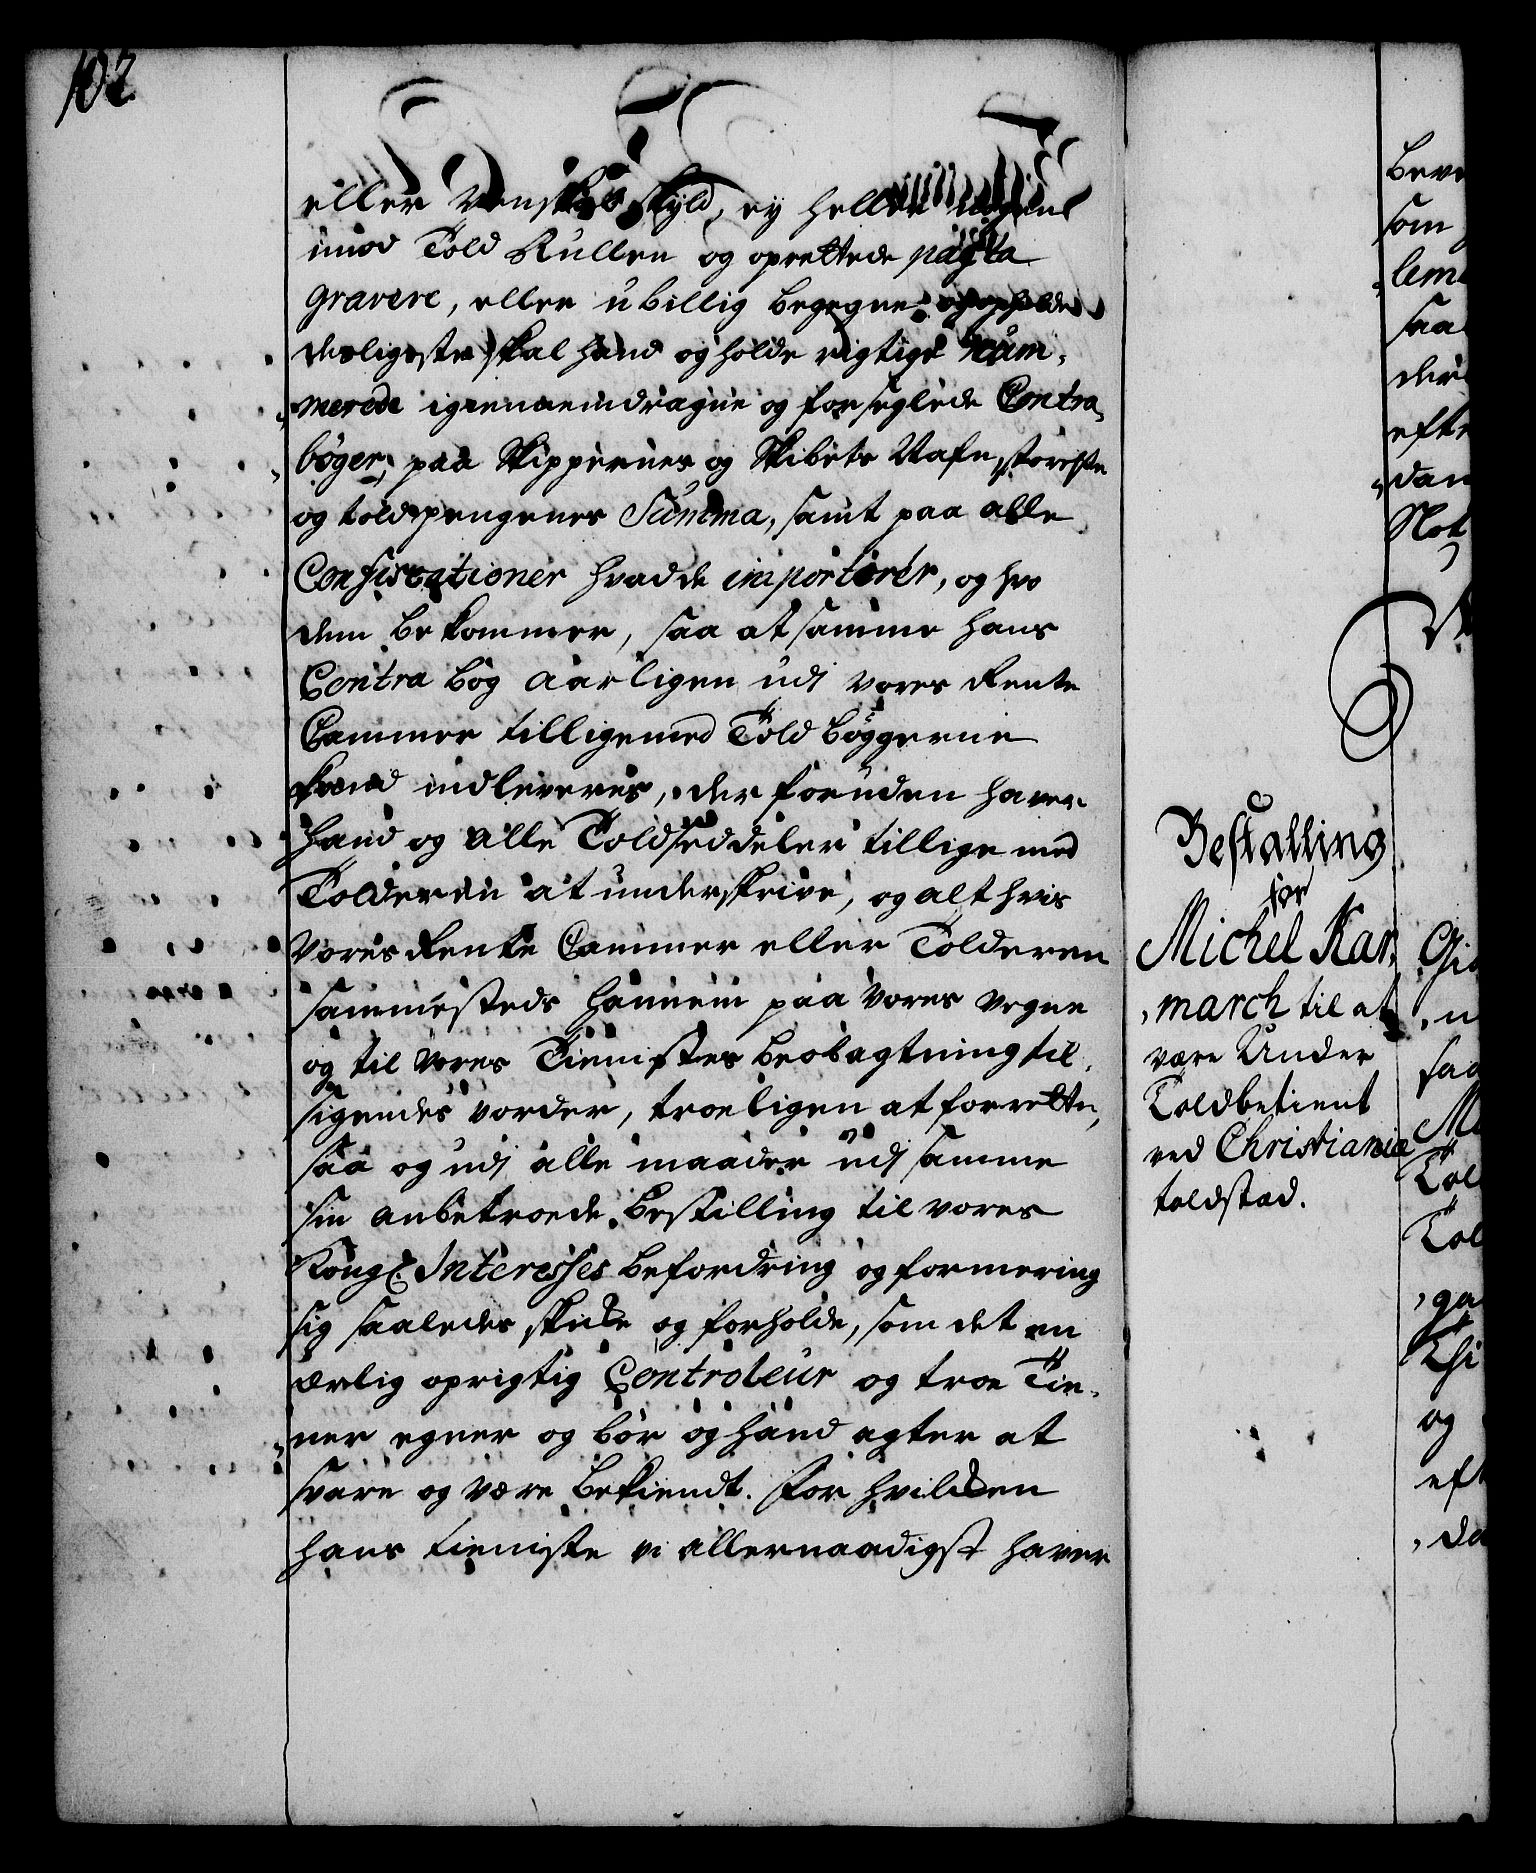 102
eller Venskabs skyld, ey heller nogen
imod Told Rullen og oprettede pagta
gravere, eller ubillig begegne og opholde
desligeste skal hand og holde rigtige Num,
merede igiennemdragne og forseglede Contra,
bøger, paa Skippernes og Skibets Nafn, størelse
og toldpengenes Summa, samt paa alle
Confiscationer hvad de importerer, og hvo
dem bekommer, saa at samme hans
Contra bog aarligen udj vores Rente
Cammer tilligemed Told bøggerne
skand indleveres, der foruden haver
hand og alle Toldseddeler tillige med
Tolderen at underskrive, og alt hvis
Vores Rente Cammer eller Tolderen
sammesteds hannem paa Vores vegne
og til Vores Tienistes beobagtning til,
sigendes vorder, troeligen at forrette,
saa og udj alle maader udj samme
sin anbetroede Bestilling til vores
Kongl. Interesses befordring og formering
sig saaledes skicke og forholde, som det en
ærlig oprigtig Controleur og troe Tie,
ner egner og bør og hand agter at
svare og være bekiendt. For hvilcken
hans tieniste vi allernaadigst haver
Bestalling
for
Michel Kar,
,march til at
være Under
Toldbetient
ved Christiania
toldstad.